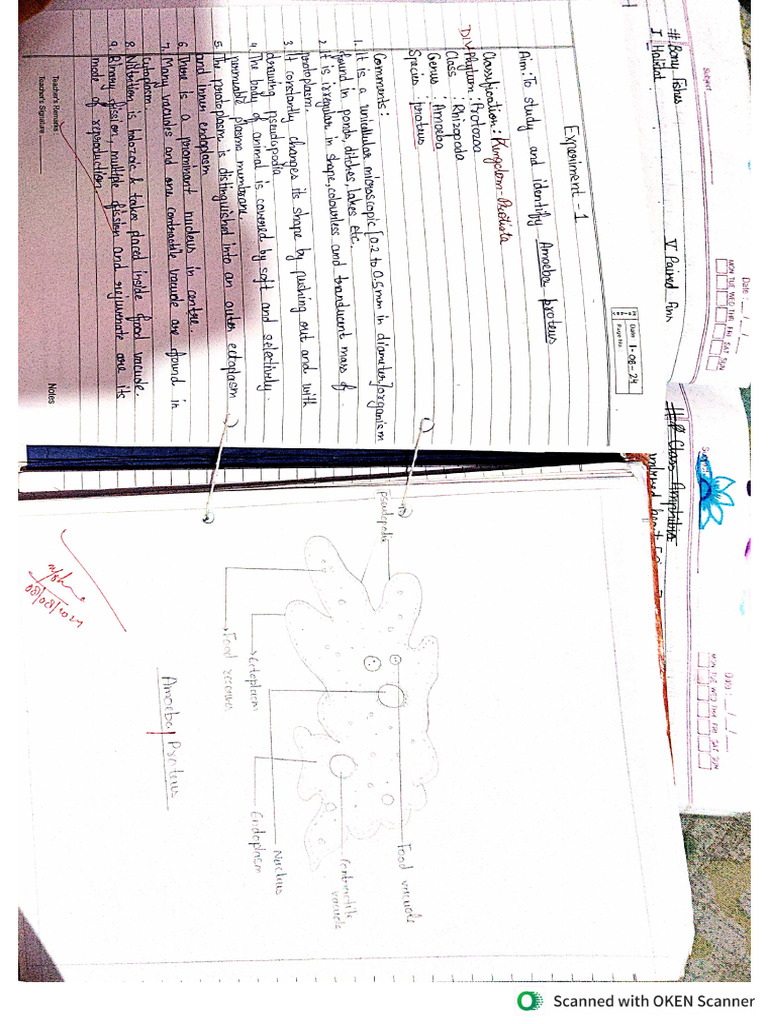 # Bony Fishes
I Habitat
V Paired fins
Subject
Date : __/__/__
MON TUE WED THR FRI SAT SUN
Date 1-08-24
Page No.
Experiment - 1
Aim: To study and identify Amoeba proteus
Classification : Kingdom - Protista
Div Phylum : Protozoa
Class : Rhizopoda
Genus : Amoeba
Species : proteus
Comments :
1. It is a unicellular microscopic [0.2 to 0.5mm in diameter] organism
found in ponds, ditches, lakes etc.
2. It is irregular in shape, colourless and tranclucent mass of
protoplasm.
3. It constantly changes its shape by pushing out and with
drawing pseudopodia
4. The body of animal is covered by soft and selectively
permeable plasma membrane.
5. The protoplasm is distinguished into an outer ectoplasm
and inner endoplasm
6. There is a prominant nucleus in centre.
7. Many vacuoles and one contractile vacuole are found in
Cytoplasm.
8. Nutrition is holozoic & takes placed inside food vacuole.
9. Binary fission, multiple fission and rejuvenate are its
mode of reproduction.
Teacher's Remarks
Teacher's Signature
Notes
# Class Amphibia
Date : __/__/__
MON TUE WED THR FRI SAT SUN
pseudopodia
Food vacuole
Contractile
vacuole
Nucleus
Endoplasm
Ectoplasm
Food
Amoeba Proteus
08/08/2024
Scanned with OKEN Scanner